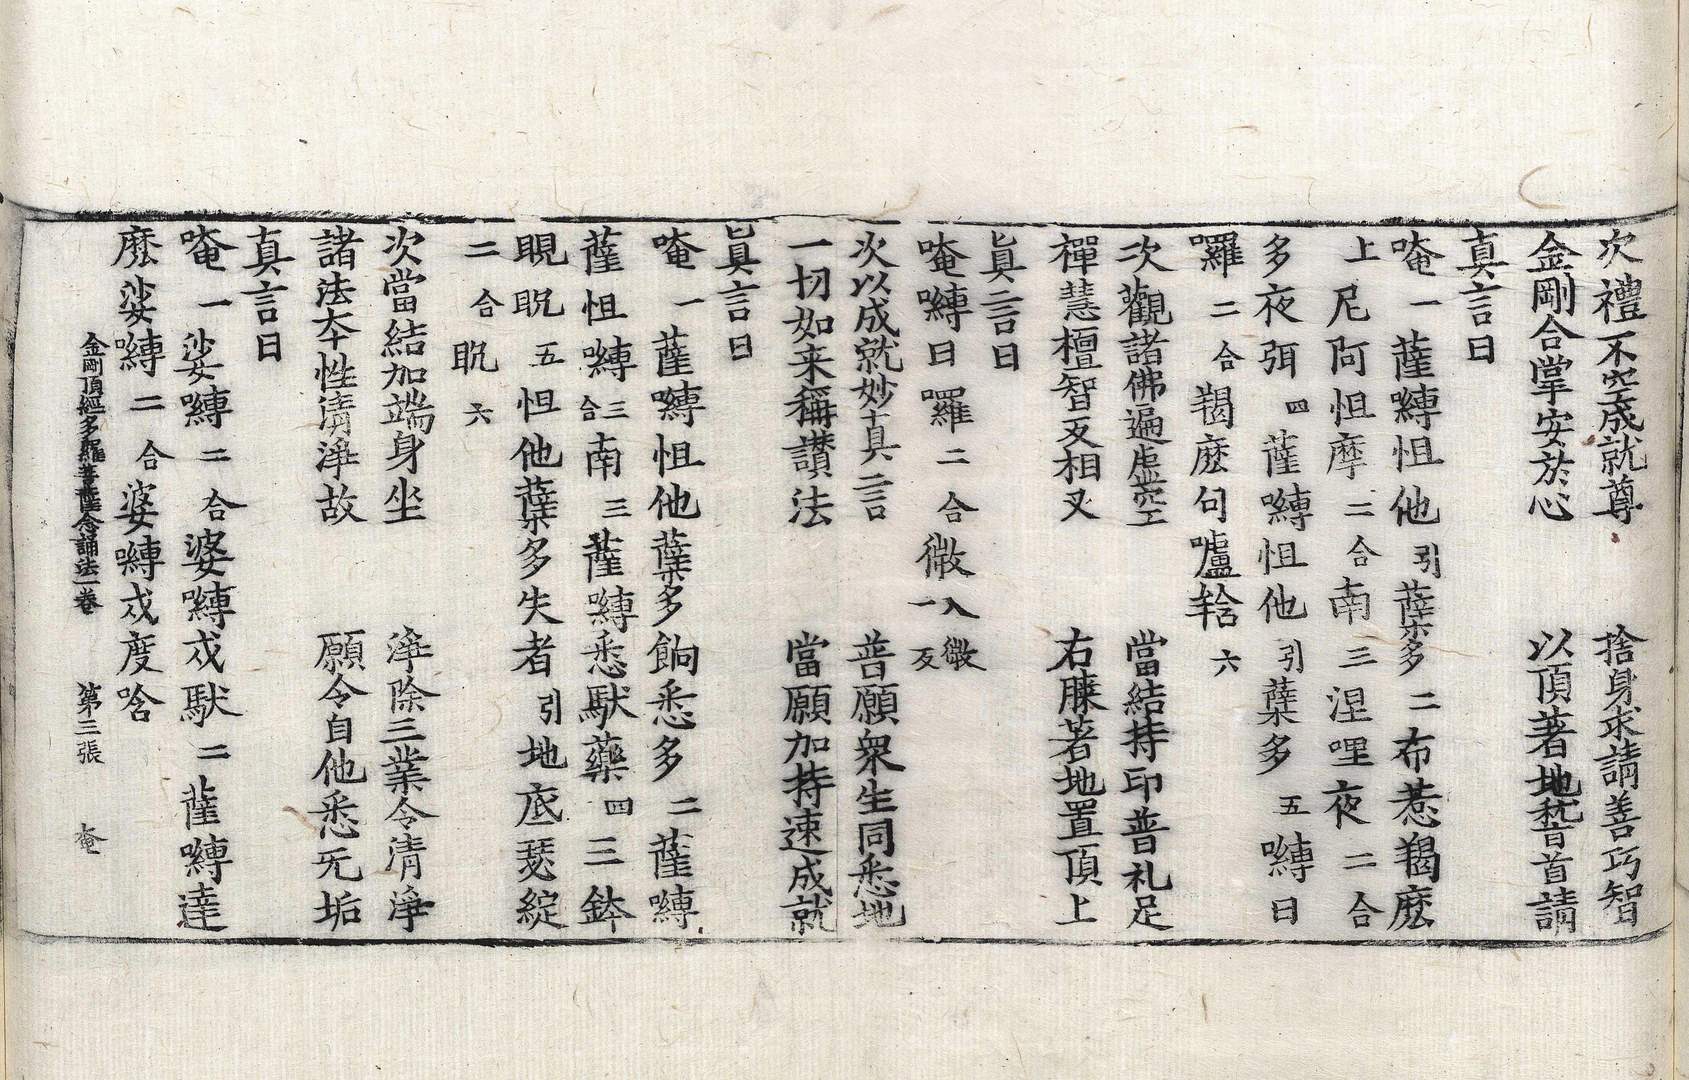 次禮不空成就尊　捨身求請善巧智
金剛合掌安於心　以頂著地稽首請
真言曰
唵一薩嚩怛他引蘖多二布惹羯麽
上尼阿怛摩二合南三涅哩夜二合
多夜弭四薩嚩怛他引蘖多五嚩日
囉二合羯麽句嚧𤙖六
次觀諸佛遍虛空　當結持印普礼足
禪慧檀智反相叉　右膝著地置頂上
真言曰
唵嚩日囉二合微入微一反
次以成就妙真言　普願衆生同悉地
一切如来稱讃法　當願加持速成就
真言曰
唵一薩嚩怛他蘖多餉悉多二薩嚩
薩怛嚩三合南三薩嚩悉馱藥四三鉢
睍䀪五怛他蘖多失者引地底瑟綻
二合䀪六
次當結加端身坐　淨除三業令清淨
諸法本性清淨故　願令自他悉无垢
真言曰
唵一娑嚩二合婆嚩戍馱二薩嚩達
麽娑嚩二合婆嚩戍度唅
金剛頂經多羅菩薩念誦法一卷　第三張　奄